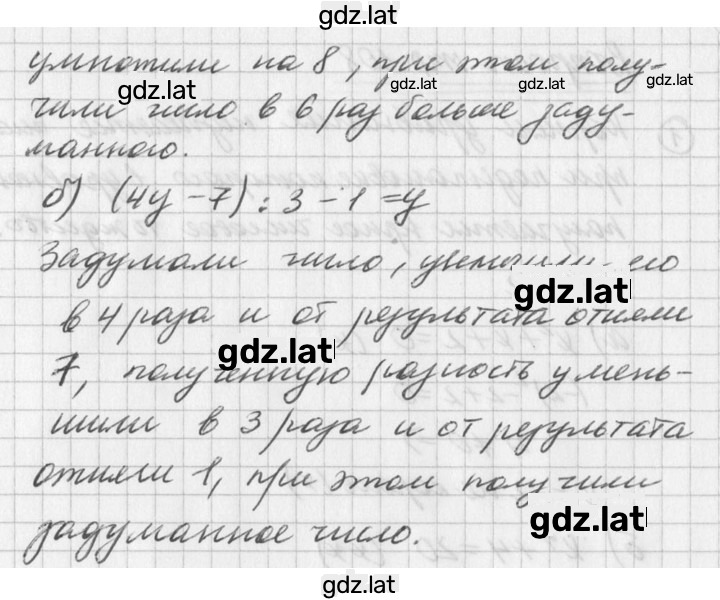 gdz.lat
умножили на 8, при этом полу-
gdz.lat gdz.lat gdz.lat gdz.lat
чили число в 6 раз больше заду-
манного.
б) (4y - 7) : 3 - 1 = y
Задумали число, его
gdz.lat
в 4 раза и от результата отняли
gdz.lat
7, полученную разность умень-
шили в 3 раза и от результата
отняли 1, при этом получили
gdz.lat
задуманное число.
gdz.lat